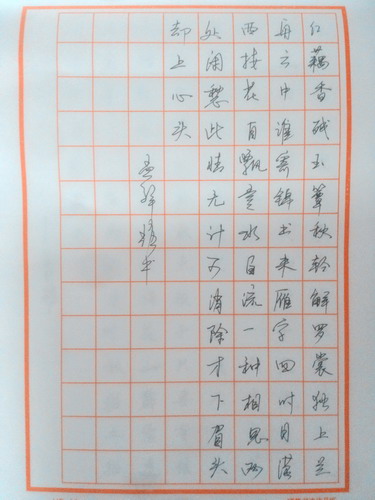 红藕香残玉簟秋轻解罗裳独上兰
舟云中谁寄锦书来雁字回时月满
西楼花自飘零水自流一种相思两
处闲愁此情无计可消除才下眉头
却上心头